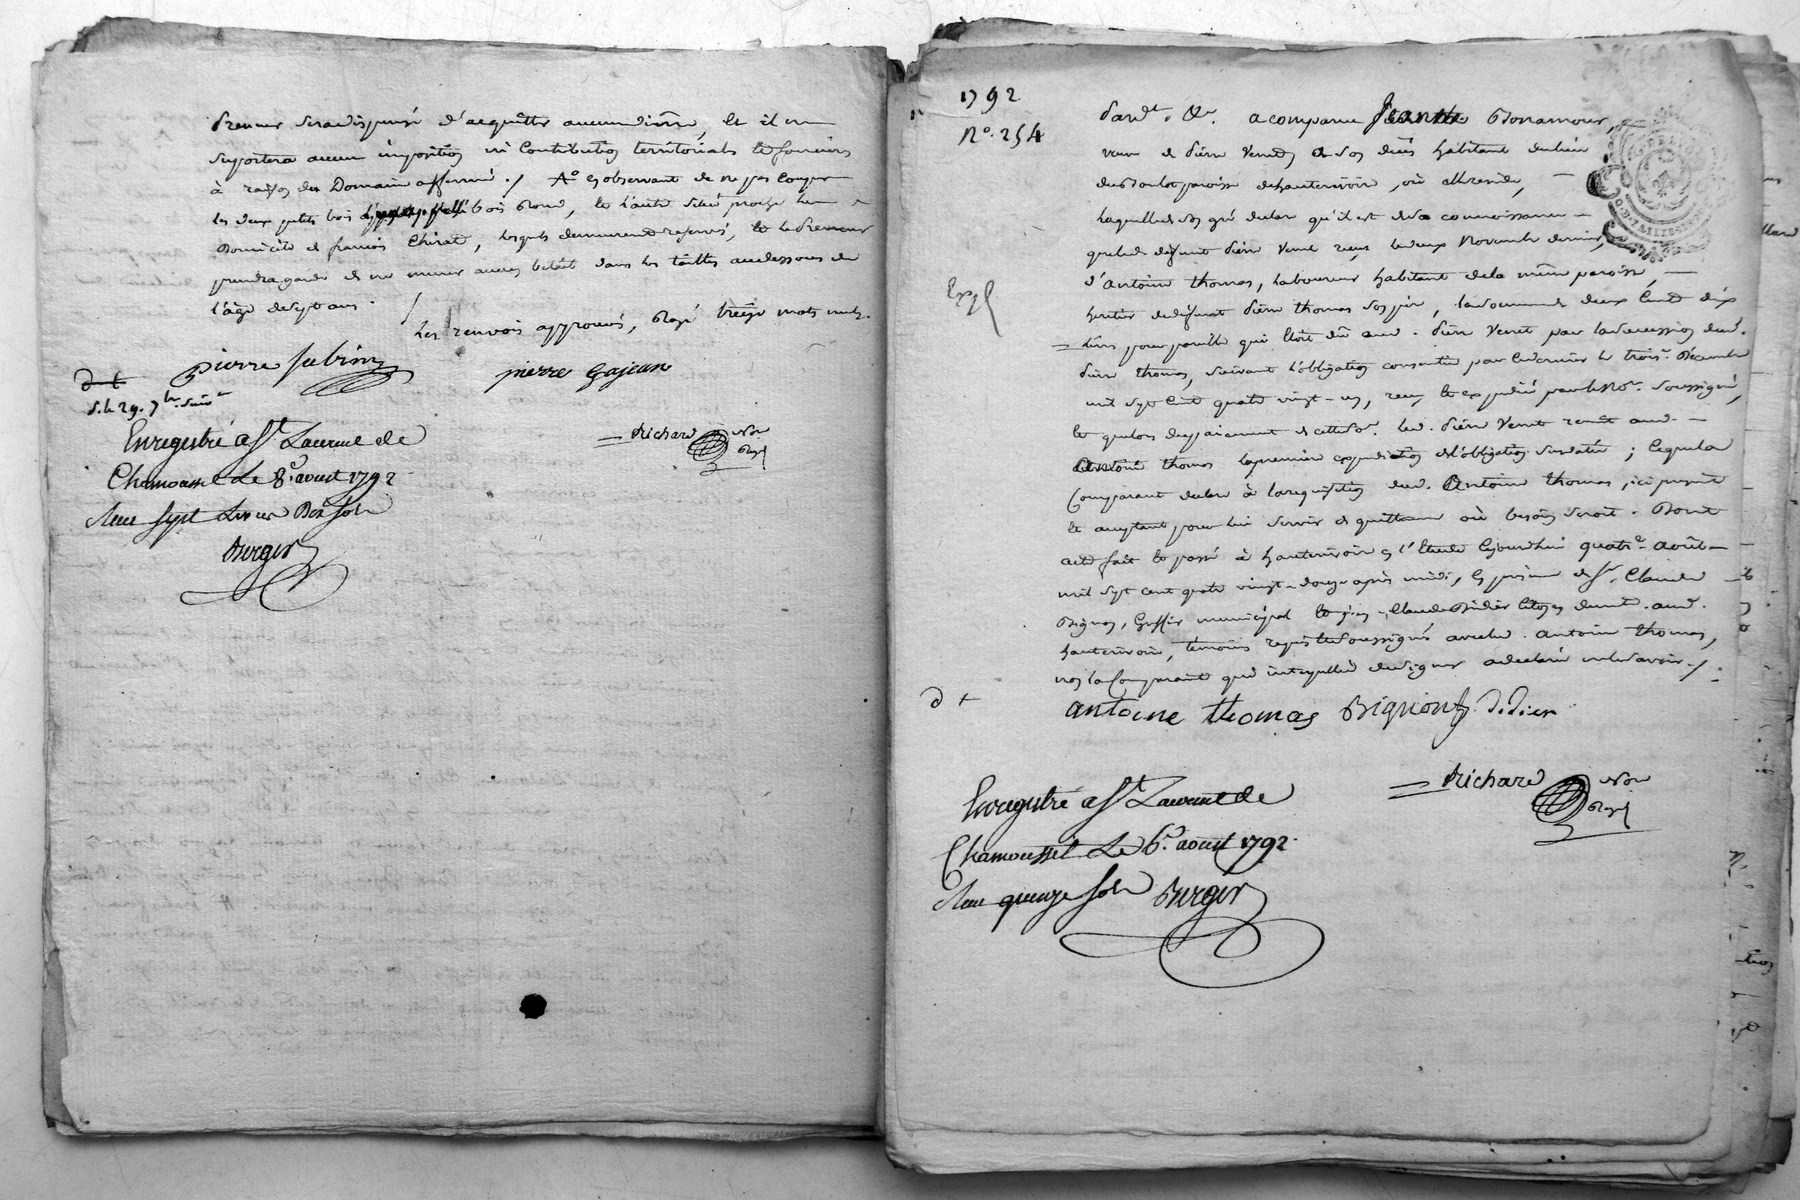 preneur sera dispensé d'acquitter aucun dixme, et il ne
suportera aucun imposition ni Contribution territorials et foncièrs
à raison des Domaine affermé ./ 4° en observant de ne pas Couper
les deux petits bois bois Rond, et l'autre situé proche le
Domicile de françois Chirat, lesquels demeurent reservés, et le Preneur
prendra garde de ne mener aucun bétail dans les tailles audessous de
l'age de sept ans.
Les renvois approuvés, Rayé treize mots nuls.
pierre subrin
pierre Gajean
d. le 29. 7bre. suivt
Enregistré a St. Laurent de
Chamousset Le 8. aout 1792
Reçu sept Livres Dix sols
Berger
Richard Nore
Royl
1792
N°. 254
Expl
Pardt. &c. a comparu Jeanne Bonamour,
veuve de Pierre Venet de son vivant habitant du lieu
du Boulot paroisse de hauterivoire, où elle reside,
Laquelle de son gré declare qu'il est de sa connoissance
que led. defunt Pierre Venet reçut le deux Novembre dernier,
d'Antoine thomas, Laboureur habitant de la même paroisse,
heritier de defunt Pierre thomas son père, la somme de deux Cent dix
Livres pour pareille qui étoit dû aud. Pierre Venet par la succession dud.
Pierre thomas, suivant l'obligation consentie par ce dernier le trois. Décembre
mil sept Cent quatre vingt-un, reçue et expédiée par le Nore. soussigné,
et que lors du paiement de cette so. led. Pierre Venet remit aud.
Antoine thomas la premiere expedition de l'obligation susdatée ; Ce que la
Comparant declare à la requisition dud. Antoine thomas, ici present
et acceptant pour lui servir de quittance où besoin seroit. Dont
acte fait et passé à hauterivoire en l'Etude Cejourdhui quatre. aout
mil sept cent quatre vingt-douze après midi, En présence de Sr. Claude
Bignon, Greffier municipal et Jean-Claude Didier Citoyen demt. aud.
hauterivoire, témoins requis et soussignés avec led. antoine thomas,
non la Comparante qui interpellée de signer a declaré ne le savoir ./.
antoine thomas Bignon Didier
Richard Nore
Royl
Enregistré a St. Laurent de
Chamousset Le 6. aout 1792
Reçu quinze sols Berger